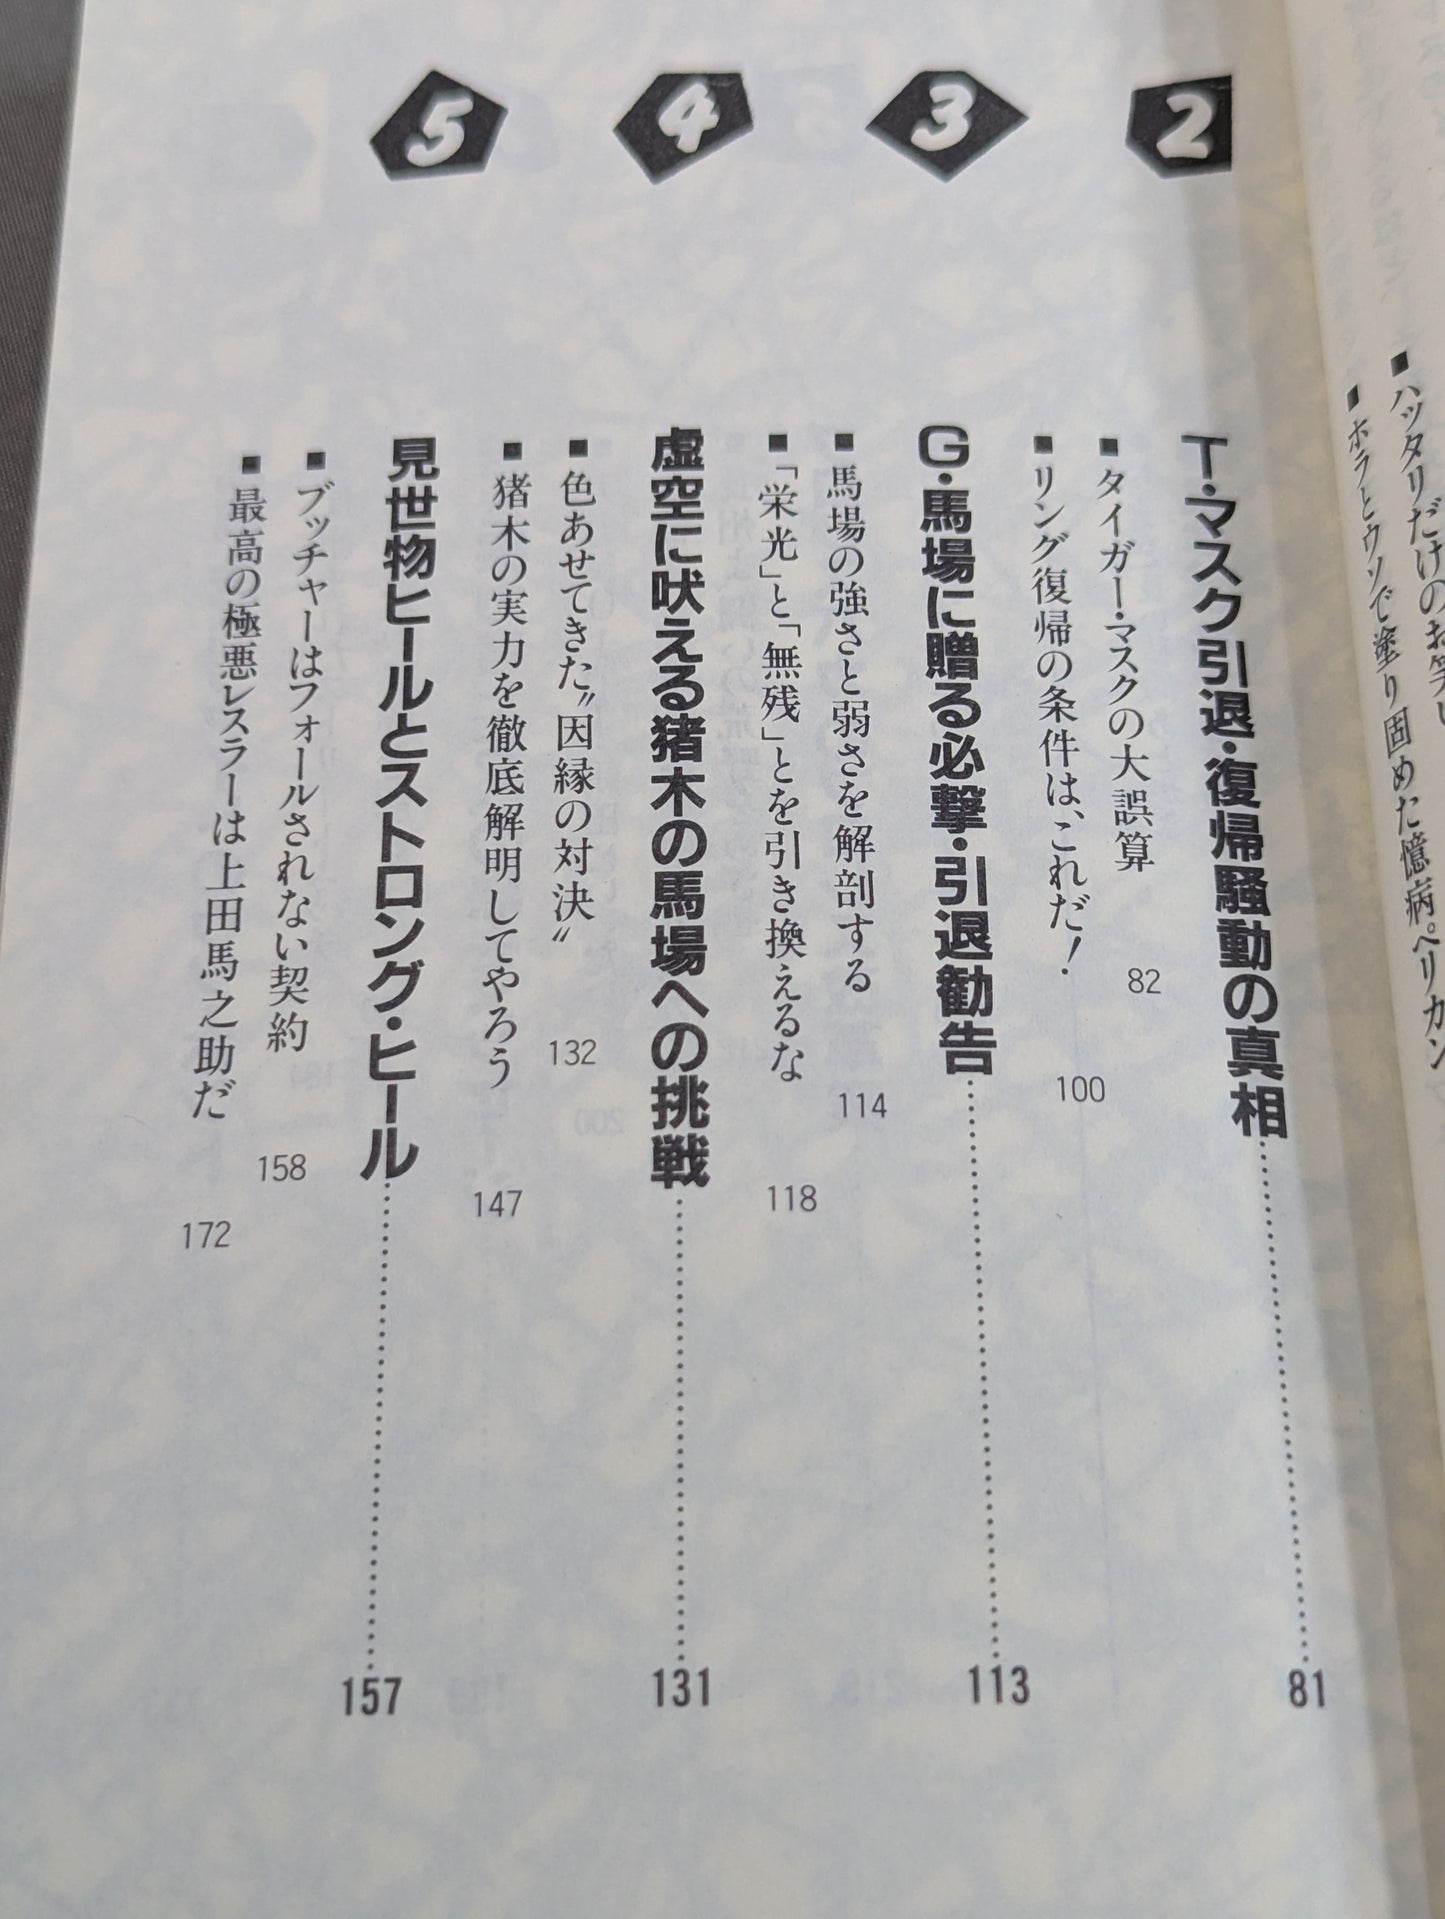 ■ハッタリだけのお笑い
■ホラとウソで塗り固めた憶病ペリカン
2
T・マスク引退・復帰騒動の真相
81
■タイガー・マスクの大誤算
82
■リング復帰の条件は、これだ!
100
3
G・馬場に贈る必撃・引退勧告
113
■馬場の強さと弱さを解剖する
114
■「栄光」と「無残」とを引き換えるな
118
4
虚空に吠える猪木の馬場への挑戦
131
■色あせてきた〝因縁の対決〟
132
■猪木の実力を徹底解明してやろう
147
5
見世物ヒールとストロング・ヒール
157
■ブッチャーはフォールされない契約
158
■最高の極悪レスラーは上田馬之助だ
172